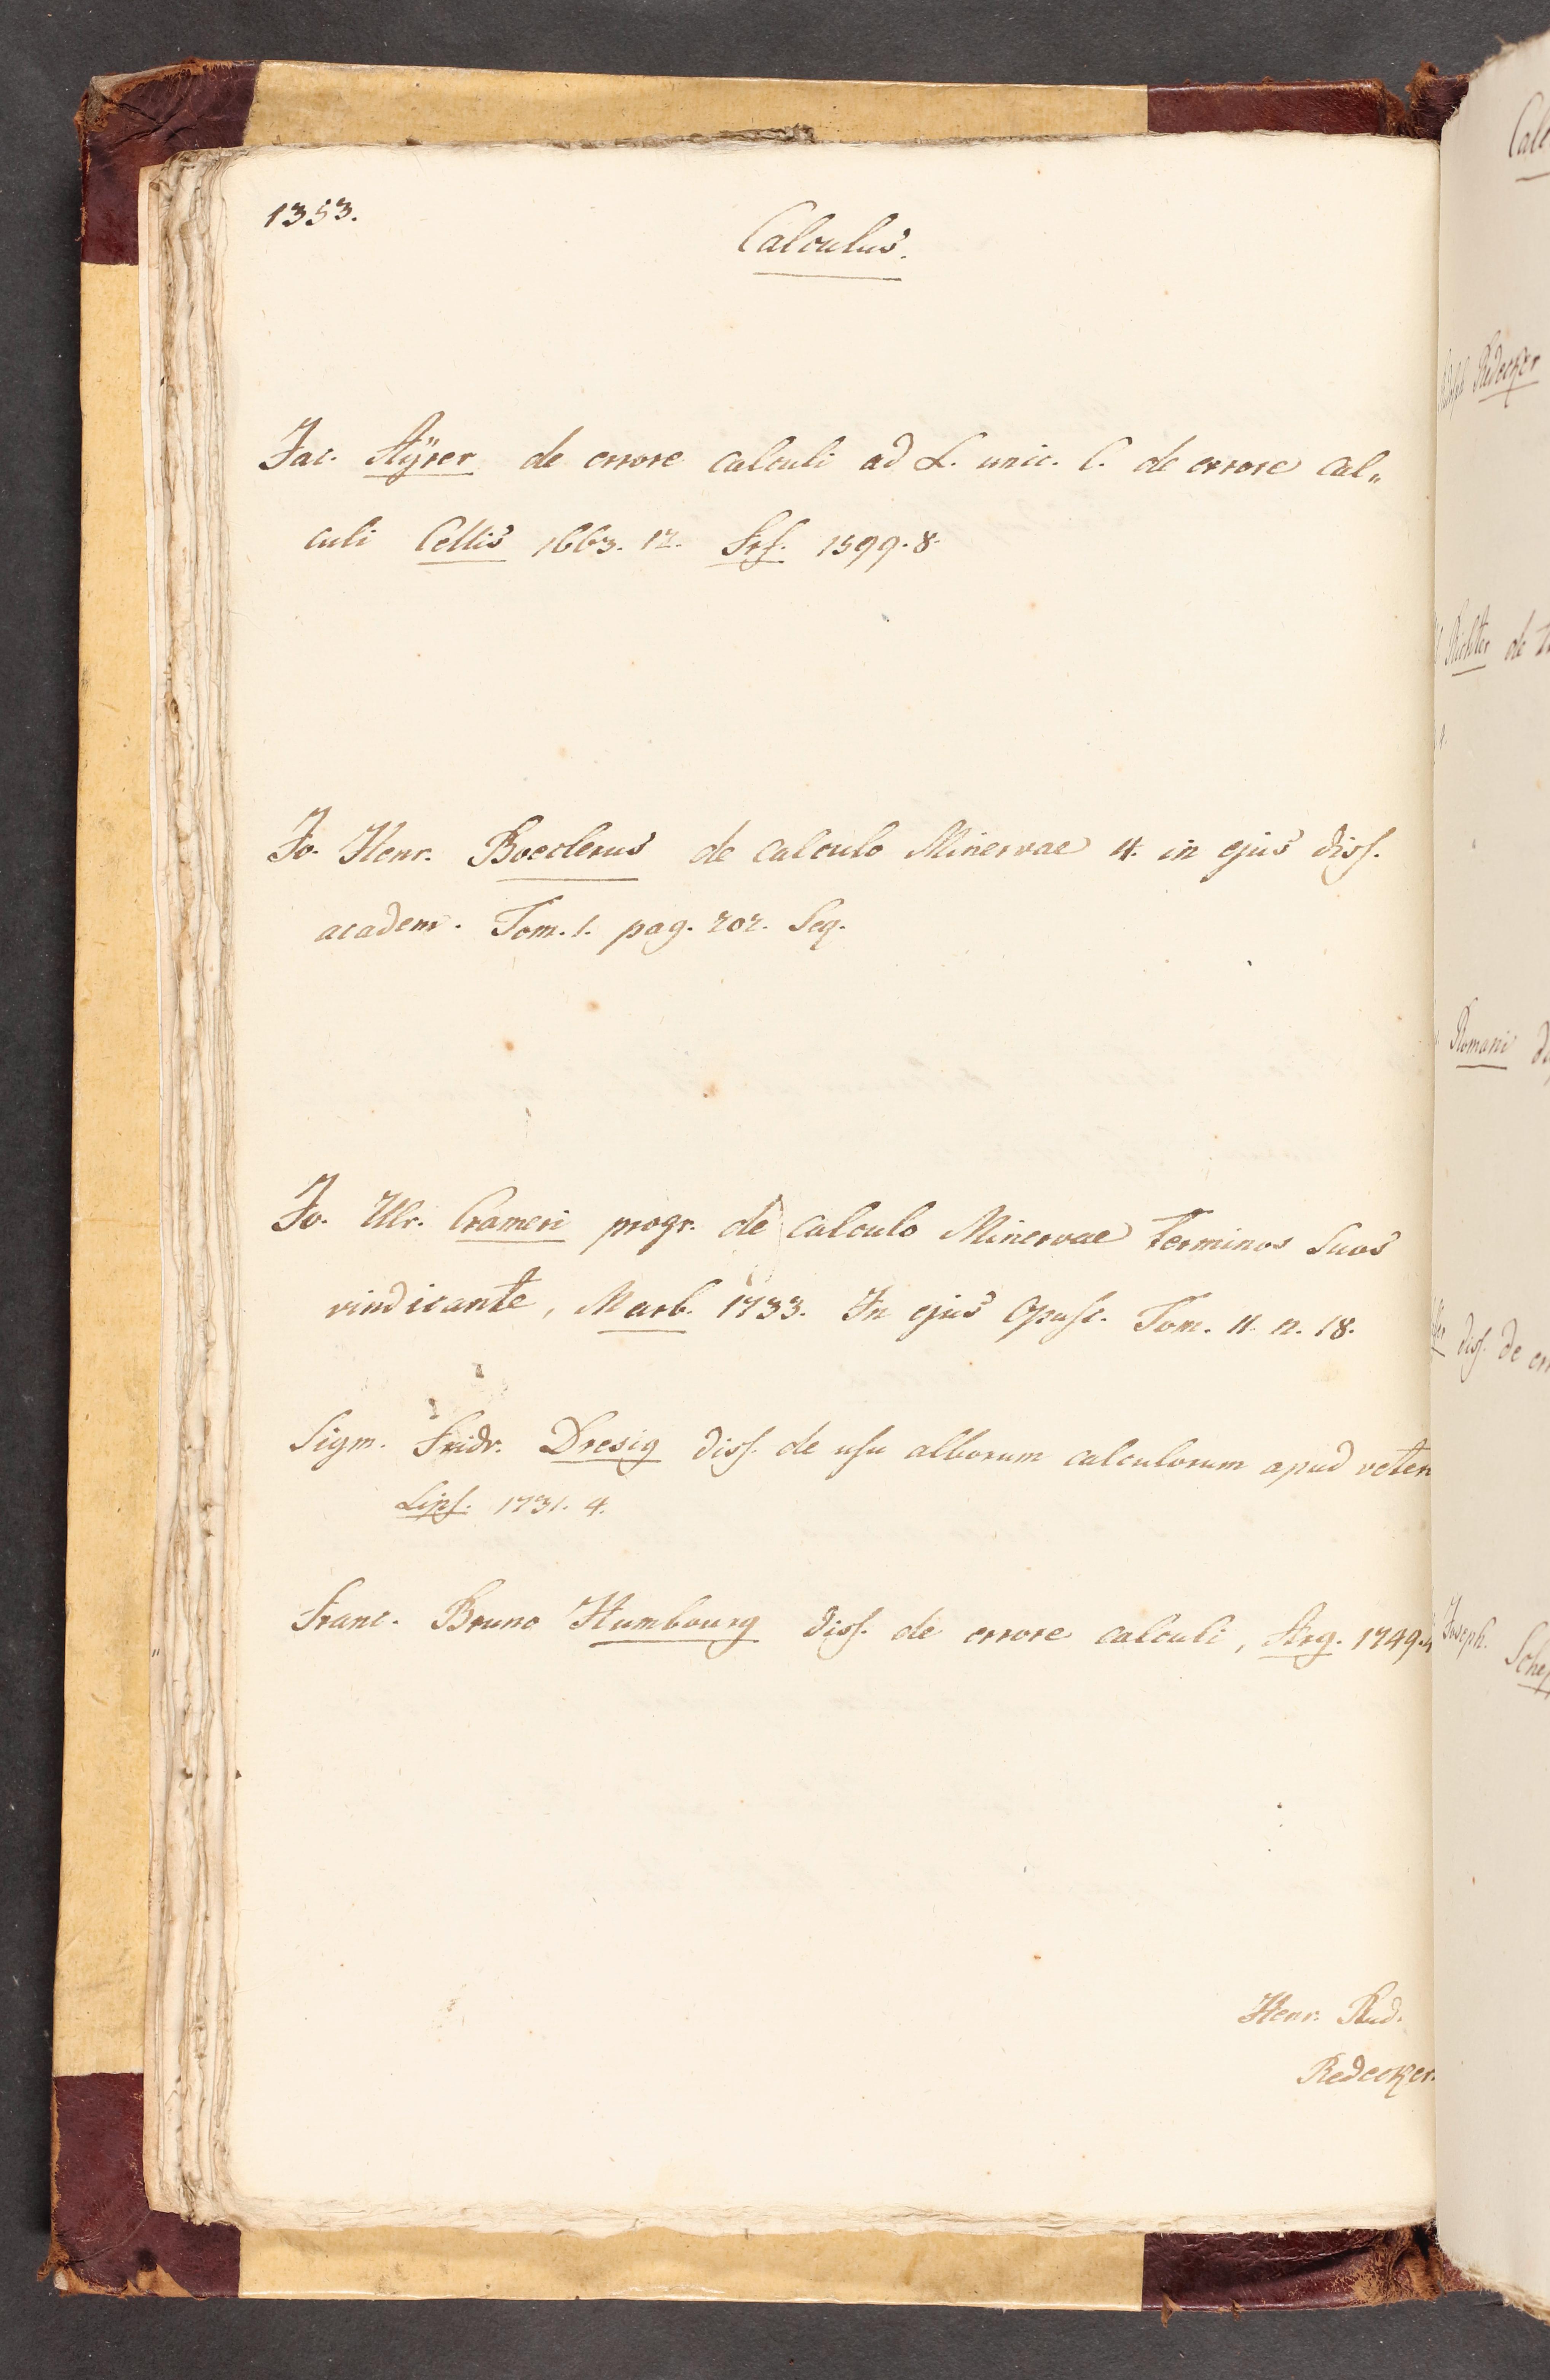 1353.
Calculus.
Jac. Aÿrer de errore calculi ad L. unic. C. de errore cal„
culi Cellis 1663. 12. Frf. 1599. 8.
Jo. Henr. Boeclerus de calculo Minervae 4. in ejus diss.
academ. Tom. 1. pag. 202. Seq.
Jo. Ulr. Crameri progr. de calculo Minervae Terminos Suos
vindicante, Marb. 1733. In ejus Opusc. Tom. II. n. 18.
Sigm. Fridr. Dresig diss. de usu alborum calculorum apud veter
Lips. 1731. 4.
Franc. Bruno Humbourg diss. de errore calculi, Arg. 1749.
Henr. Rud.
Redecker.
Redecker
Richter de
Romani
diss. de
Joseph.